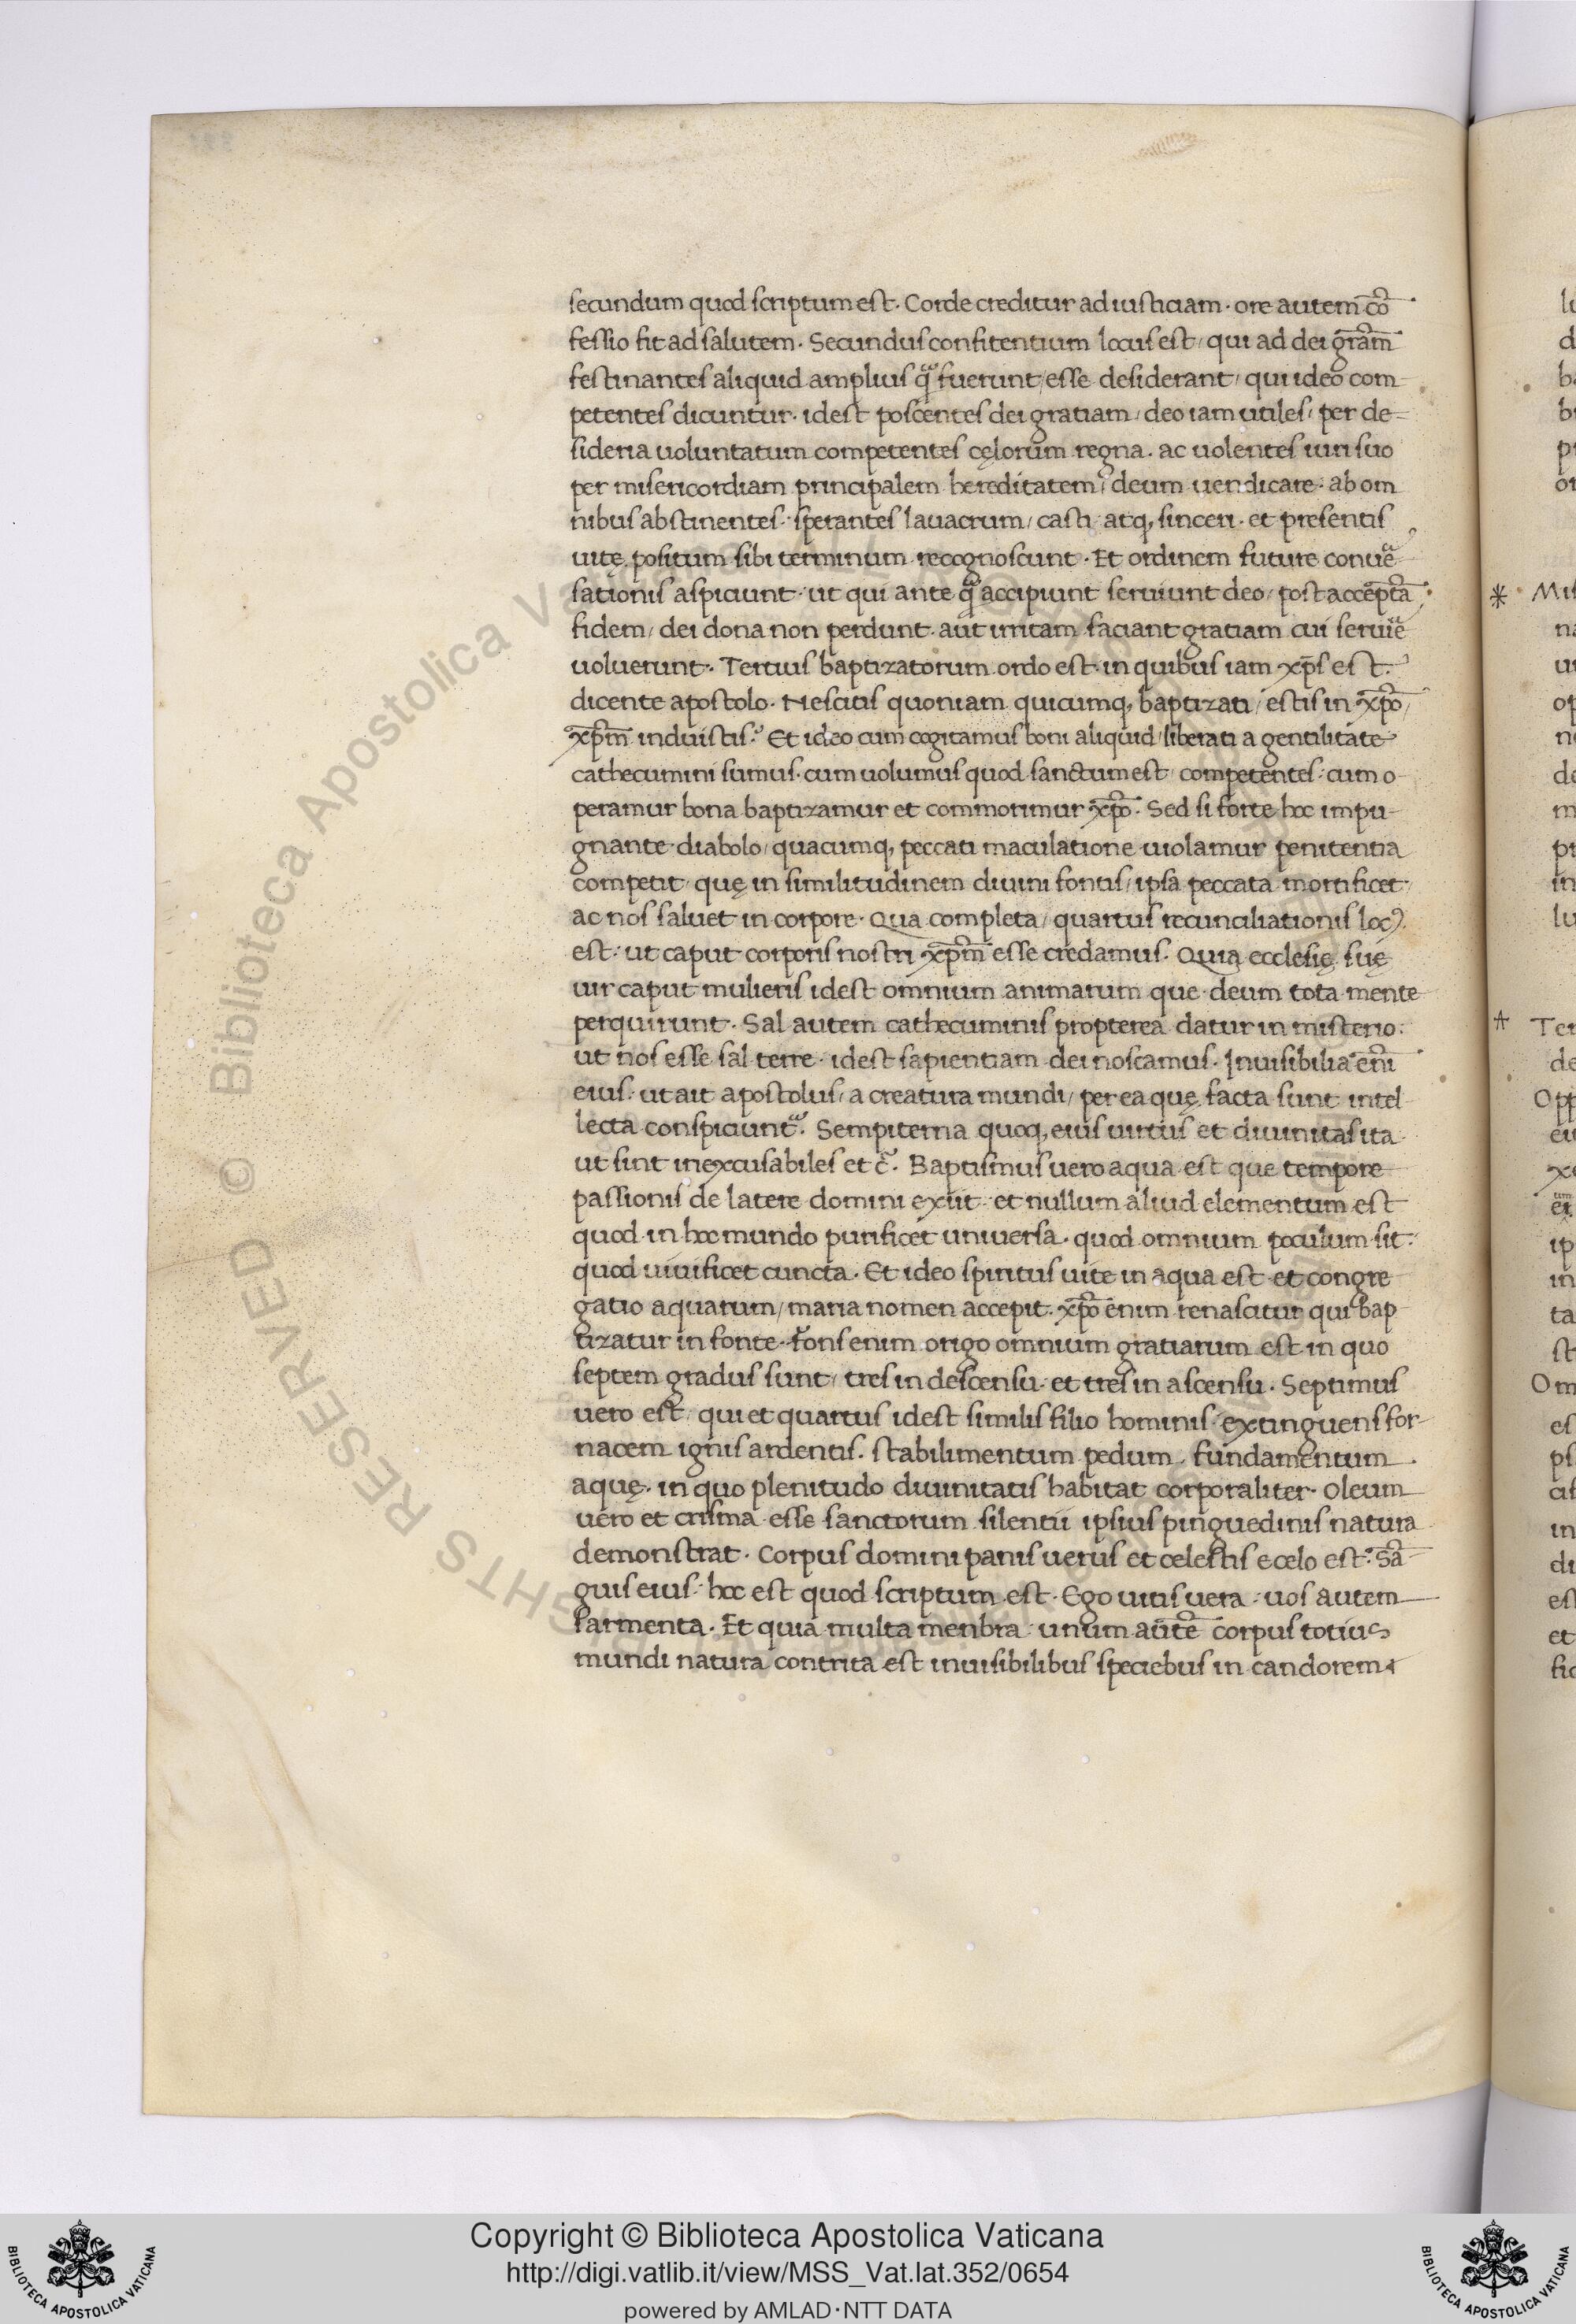 secundum quod scriptum est. Corde creditur ad iusticiam. ore autem cō
fessio fit ad salutem. Secundus confitentium locus est, qui ad dei gr̄am
festinantes aliquid amplius q̄ fuerunt, esse desiderant, qui ideo com-
petentes dicuntur. idest poscentes dei gratiam, deo iam utiles, per de-
sideria uoluntatum competentes cęlorum regna. ac uolentes iuri suo
per misericordiam principalem hereditatem, deum uendicare. ab om
nibus abstinentes. sperantes lauacrum, casti atq, sinceri. et presentis
uitę positum sibi terminum recognoscunt. Et ordinem future conuē
sationis aspiciunt. ut qui ante q̄ accipiunt seruiunt deo, post accep̄ta
fidem, dei dona non perdunt. aut irritam faciant gratiam cui seruīe
uoluerunt. Tertius baptizatorum ordo est. in quibus iam xp̄s est.
dicente apostolo. Nescitis quoniam quicumq, baptizati, estis in xp̄o,
xp̄m induistis? Et ideo cum cogitamus boni aliquid, liberati a gentilitate
cathecumini sumus. cum uolumus quod sanctum est, competentes. cum o-
peramur bona baptizamur et commorimur xp̄o. Sed si forte hoc impu-
gnante diabolo, quacumq, peccati maculatione uiolamur penitentia
competit, quę in similitudinem diuini fontis, ipsa peccata mortificet,
ac nos saluet in corpore. Qua completa, quartus recunciliationis locꝰ
est. ut caput corporis nostri xp̄m esse credamus. Quia ecclesię suę
uir caput mulieris idest omnium animarum que deum tota mente
perquirunt. Sal autem cathecuminis propterea datur in misterio.
ut nos esse sal terre. idest sapientiam dei noscamus. Inuisibilia en̄i
eius. ut ait apostolus, a creatura mundi, per ea quę facta sunt intel
lecta conspiciunt̄. Sempiterna quoq, eius uirtus et diuinitas ita
ut sint inexcusabiles et c̄. Baptismus uero aqua est que tempore
passionis de latere domini exiit. et nullum aliud elementum est
quod in hoc mundo purificet uniuersa. quod omnium poculum sit.
quod uiuificet cuncta. Et ideo spiritus uite in aqua est et congre
gatio aquarum, maria nomen accepit. xp̄o enim renascitur qui bap
tizatur in fonte. fons enim origo omnium gratiarum est in quo
septem gradus sunt, tres in descensu. et tres in ascensu. Septimus
uero est, qui et quartus idest similis filio hominis. extinguens for-
nacem ignis ardentis. stabilimentum pedum, fundamentum
aquę. in quo plenitudo diuinitatis habitat corporaliter. Oleum
uero et crisma esse sanctorum silentii ipsius pinguedinis natura
demonstrat. Corpus domini panis uerus et celestis e celo est. Sā-
guis eius. hoc est quod scriptum est. Ego uitis uera. uos autem
sarmenta. Et quia multa menbra. unum aūtē corpus totius
mundi natura contrita est inuisibilibus speciebus in candorem
© Biblioteca Apostolica Vaticana
RIGHTS RESERVED
BIBLIOTECA APOSTOLICA VATICANA
Copyright © Biblioteca Apostolica Vaticana
http://digi.vatlib.it/view/MSS_Vat.lat.352/0654
powered by AMLAD·NTT DATA
BIBLIOTECA APOSTOLICA VATICANA